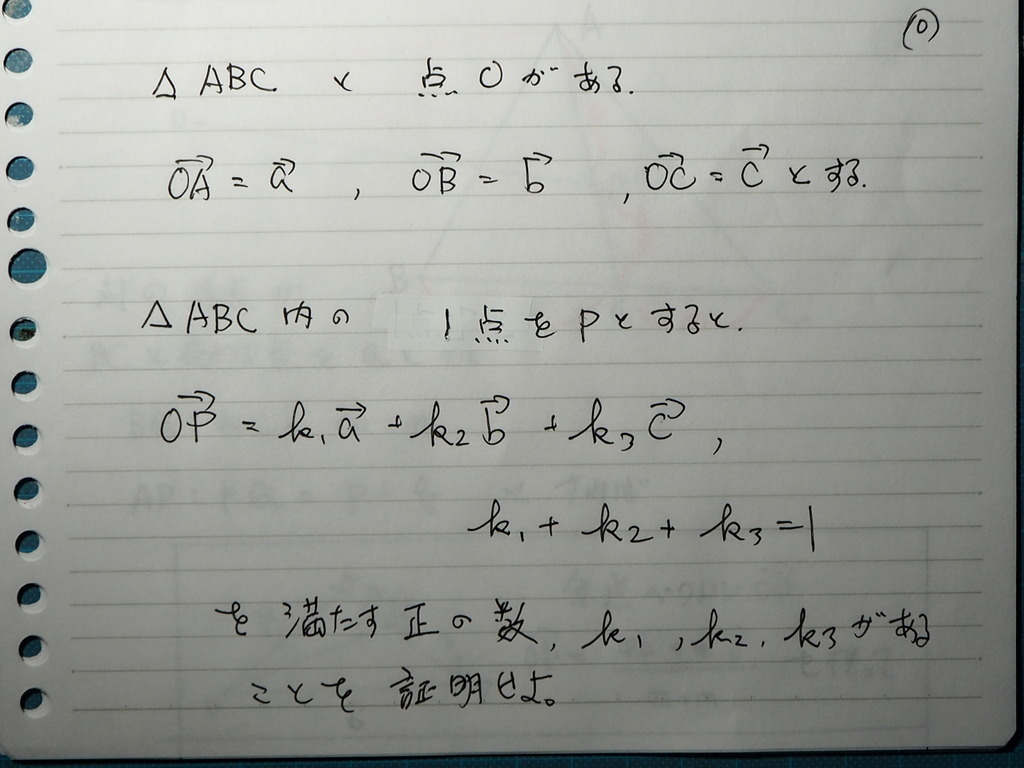 (0)
△ABC と 点Oがある.
$\overrightarrow{OA} = \vec{a}$ , $\overrightarrow{OB} = \vec{b}$ , $\overrightarrow{OC} = \vec{c}$ とする.
△ABC 内の 1点を Pとすると.
$\overrightarrow{OP} = k_1\vec{a} + k_2\vec{b} + k_3\vec{c}$ ,
$k_1 + k_2 + k_3 = 1$
を満たす正の数, $k_1$ , $k_2$. $k_3$がある
ことを 証明せよ。